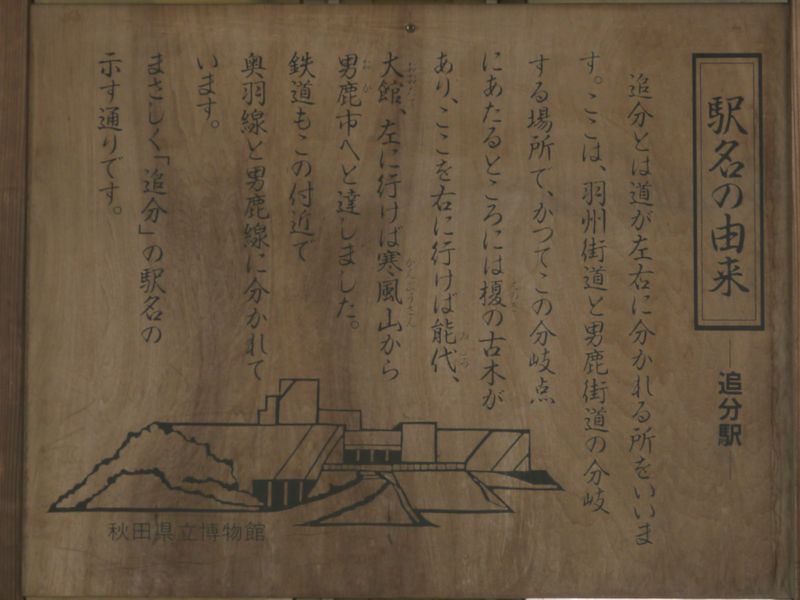 駅名の由来
―追分駅―
追分とは道が左右に分かれる所をいいま
す。ここは、羽州街道と男鹿街道の分岐
する場所で、かつてこの分岐点
にあたるところには榎の古木が
あり、ここを右に行けば能代、
大館、左に行けば寒風山から
男鹿市へと達しました。
鉄道もこの付近で
奥羽線と男鹿線に分かれて
います。
まさしく「追分」の駅名の
示す通りです。
秋田県立博物館